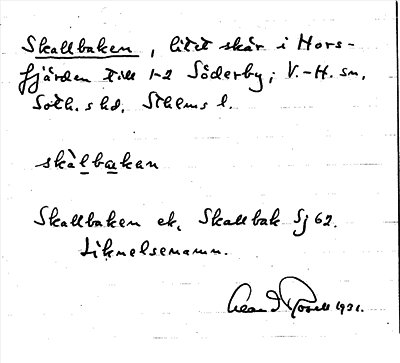 Skallbaken, litet skär i Hors-
fjärden till 1-2 Söderby, V.-H. sn,
Soth. shd, Sthlms l.
skàlbakan
Skallbaken ek. Skallbak Sj 62.
Liknelsenamn.
1931.